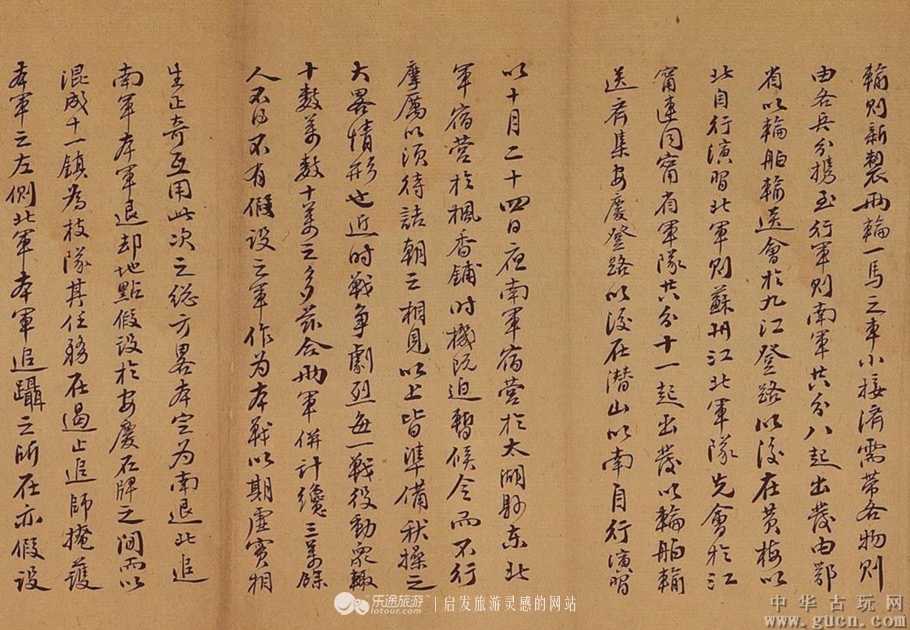 輸則新製兩輪一馬之車小接濟需帶各物則
由各兵分攜至行軍則南軍共分八起出發由鄂
省以輪船輸送會於九江登路以後在黃梅以
北自行演習北軍則蘇州江北軍隊先會於江
甯連同甯省軍隊共分十一起出發以輪船輸
送齊集安慶登路以後在潛山以南自行演習
以十月二十四日夜南軍宿營於太湖縣東北
軍宿營於楓香鋪時機既迫暫候令而不行
摩厲以須待詰朝之相見以上皆準備秋操之
大畧情形也近時戰爭劇烈每一戰役動衆輒
十數萬數十萬之多茲合兩軍併計纔三萬餘
人不得不有假設之軍作为本戰以期虛實相
生正奇互用此次之總方畧本定为南退北追
南軍本軍退却地點假設於安慶石牌之間而以
混成十一鎮為枝隊其任務在遏止追師掩護
本軍之左側北軍本軍追躡之所在亦假設
乐途旅游 lotour.com 启发旅游灵感的网站
中华古玩网
www.gucn.com